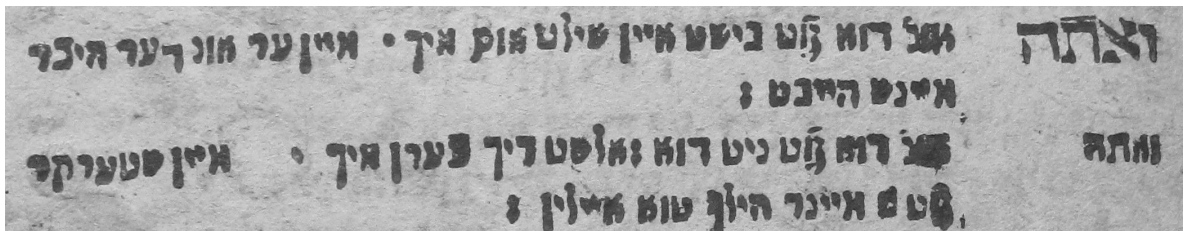 ואתה אבר דוא גֿט בישט איין שילט אום מיך · מיין ער אונ דער היבר
מיינש הייבט :
ואתה דוא גֿט ניט דוא זאלסט דיך בערן מיך · מיין סטערקר
מיינר הילף טוא איילין :